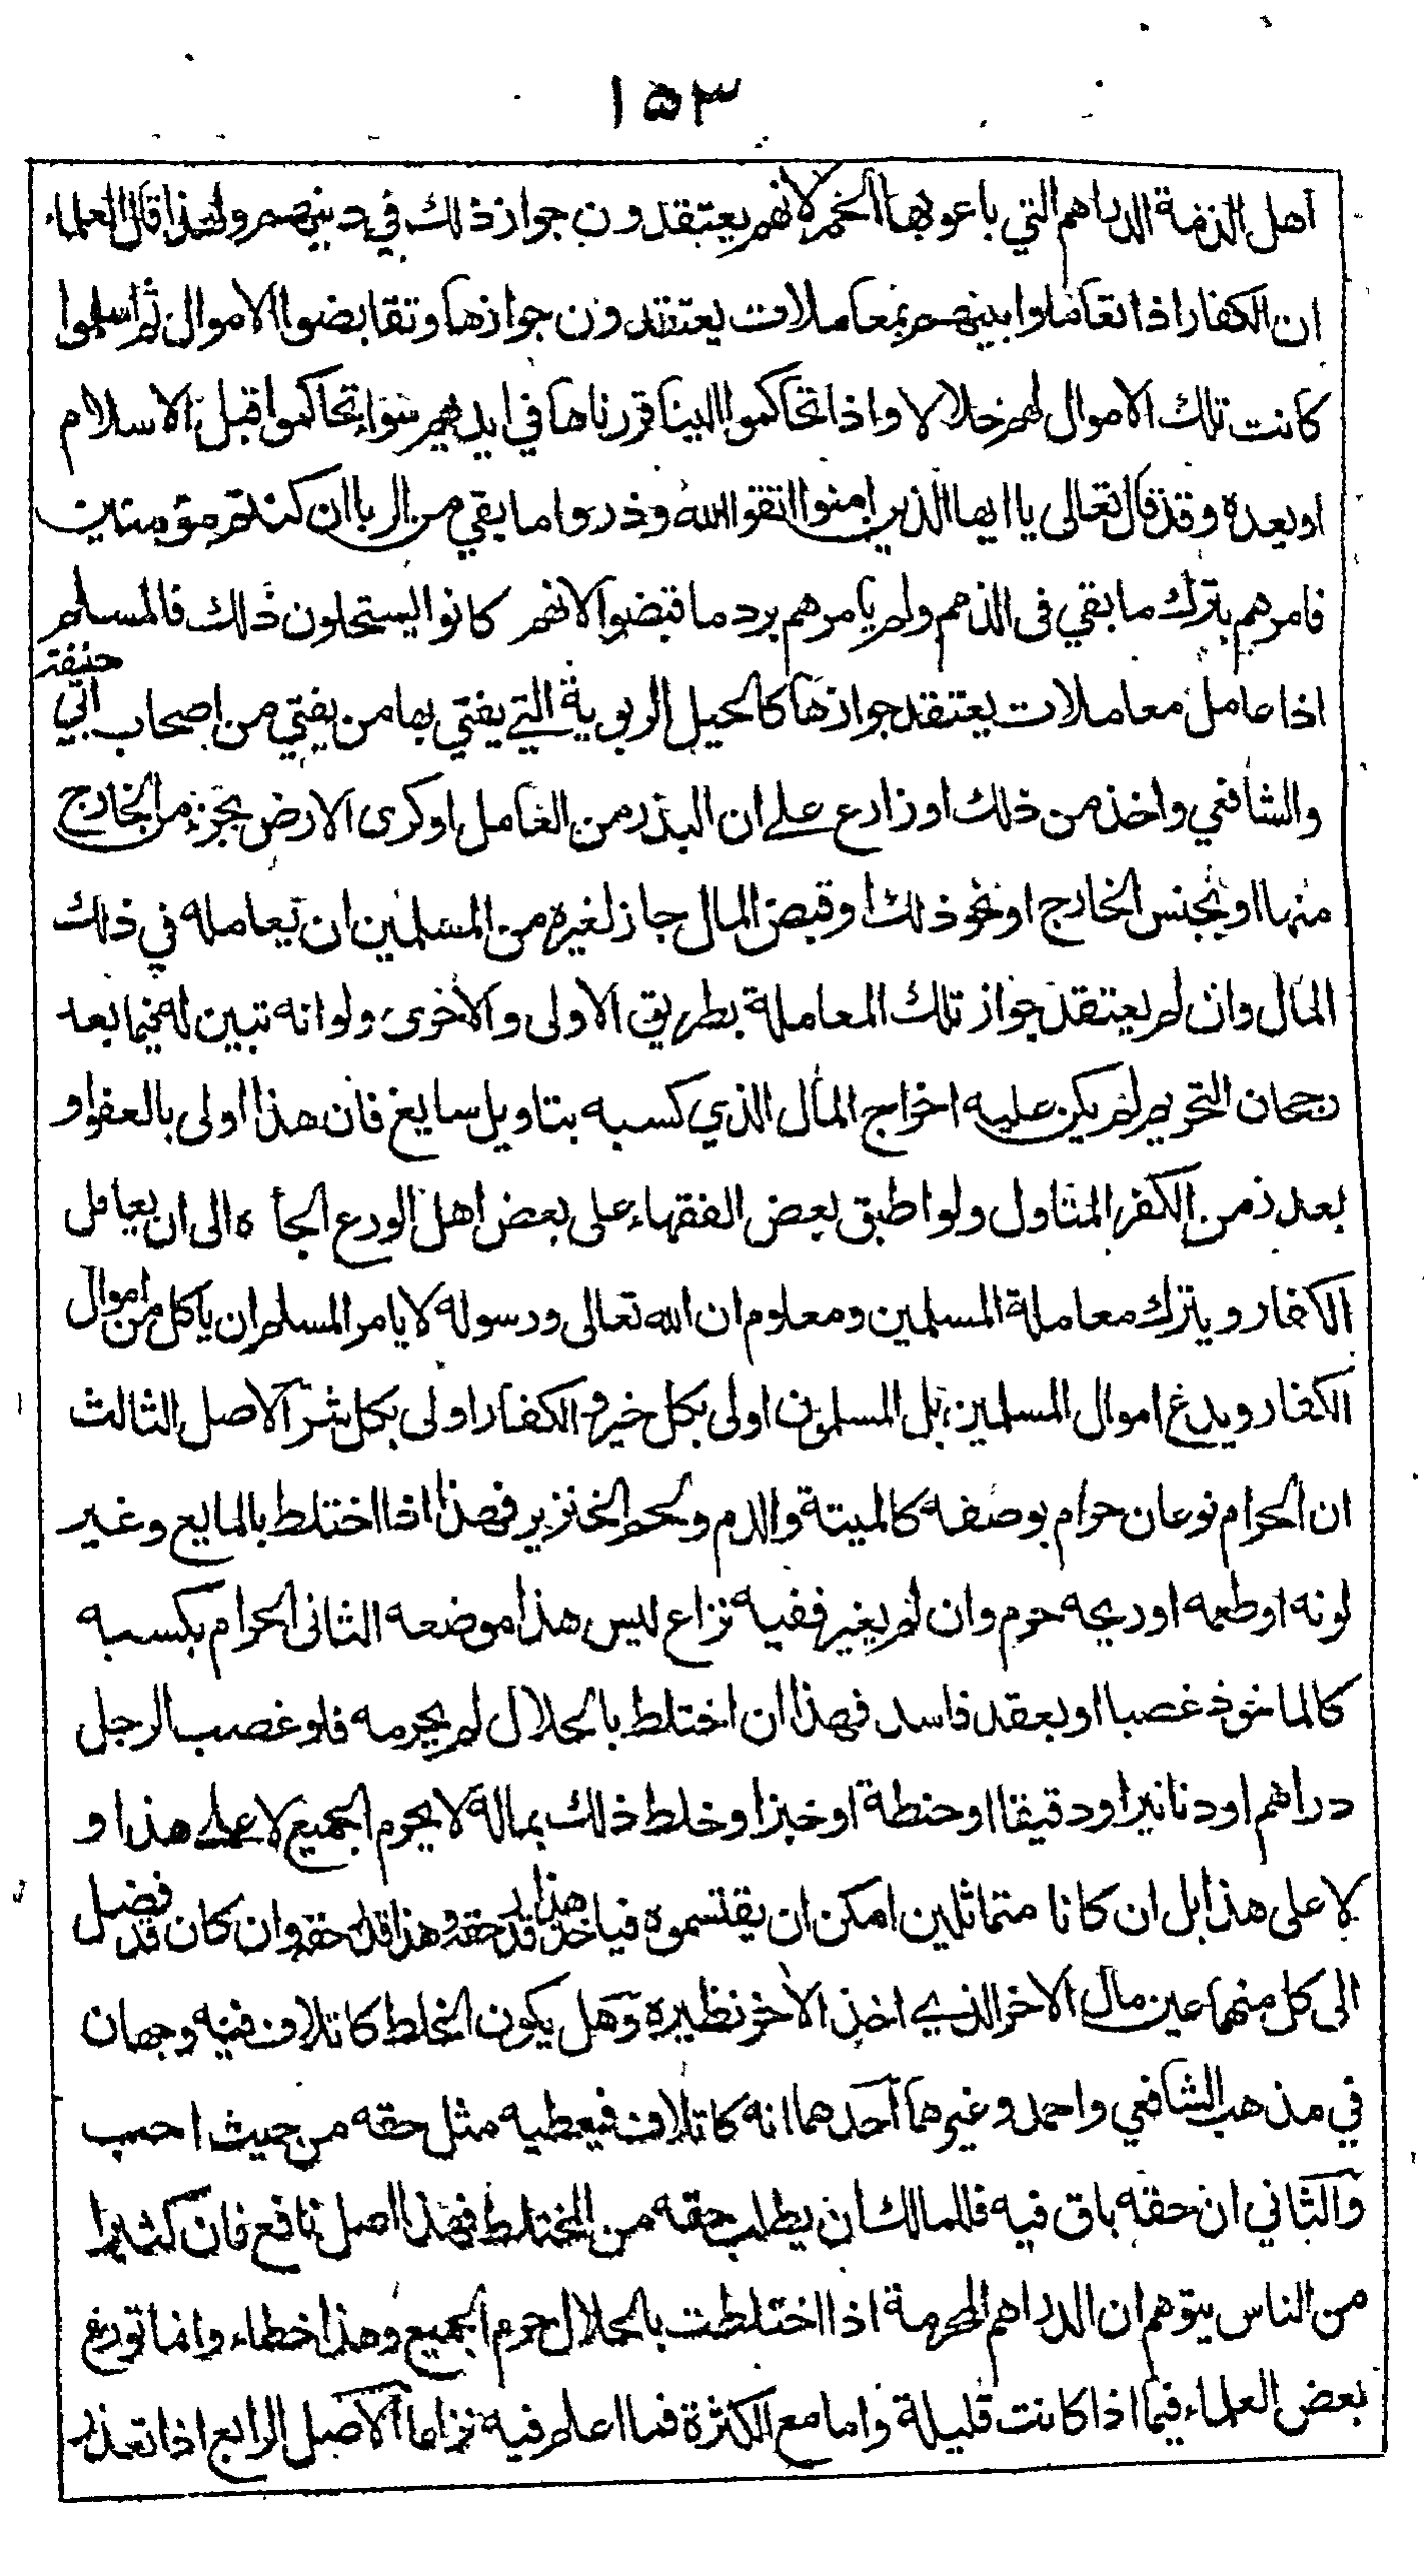 ١٥٣
اهل الذمة الدراهم التي باعوا بها الخمر لانهم يعتقدون جواز ذلك في دينهم ولهذا قال العلماء
ان الكفار اذا تعاملوا بينهم بمعاملات يعتقدون جوازها وتقابضوا الاموال ثم اسلموا
كانت تلك الاموال لهم حلالا واذا تحاكموا الينا قررناها في ايديهم سواء تحاكموا قبل الاسلام
او بعده وقد قال تعالى يا ايها الذين امنوا اتقوا الله وذروا ما بقي من الربا ان كنتم مؤمنين
فامرهم بترك ما بقي فى الذمم ولم يامرهم برد ما قبضوا لانهم كانوا يستحلون ذلك فالمسلم
اذا عامل معاملات يعتقد جوازها كالحيل الربوية التي يفتي بها من يفتي من اصحاب ابي حنيفة
والشافعي واخذ من ذلك او زارع على ان البذر من العامل او كرى الارض بجزء من الخارج
منها او بجنس الخارج او نحو ذلك او قبض المال جاز لغيره من المسلمين ان يعامله في ذلك
المال وان لم يعتقد جواز تلك المعاملة بطريق الاولى والاخرى ولو انه تبين له فيما بعد
رجحان التحريم لم يكن عليه اخراج المال الذي كسبه بتاويل سايغ فان هذا اولى بالعفو او
بعد ذمن الكفر المتاول ولو اطبق بعض الفقهاء على بعض اهل الورع الجأه الى ان يعامل
الكفار ويترك معاملة المسلمين ومعلوم ان الله تعالى ورسوله لا يامر المسلم ان ياكل من اموال
الكفار ويدع اموال المسلمين بل المسلمون اولى بكل خير والكفار اولى بكل شر الاصل الثالث
ان الحرام نوعان حرام بوصفه كالميتة والدم ولحم الخنزير فهذا اذا اختلط بالمايع وغير
لونه او طعمه او ريحه حرم وان لم يغير ففيه نزاع ليس هذا موضعه الثانى الحرام بكسبه
كالماخوذ غصبا او بعقد فاسد فهذا ان اختلط بالحلال لم يحرمه فلو غصب الرجل
دراهم او دنانير او دقيقا او حنطة او خبزا وخلط ذلك بماله لا يحرم الجميع لا على هذا و
لا على هذا بل ان كانا متماثلين امكن ان يقتسموه فياخذ هذا قدر حقه وهذا قدر حقه وان كان قد فضل
الى كل منهما عين مال الاخر الذي اخذ الاخر نظيره وهل يكون الخلط كاتلاف فيه وجهان
في مذهب الشافعي واحمد وغيرهما احدهما انه كاتلاف فيعطيه مثل حقه من حيث احب
والثاني ان حقه باق فيه فللمالك ان يطلب حقه من المختلط فهذا اصل نافع فان كثيرا
من الناس يتوهم ان الدراهم المحرمة اذا اختلطت بالحلال حرم الجميع وهذا خطاء وانما تورع
بعض العلماء فيما اذا كانت قليلة واما مع الكثرة فما اعلم فيه نزاعا الاصل الرابع اذا تعذر